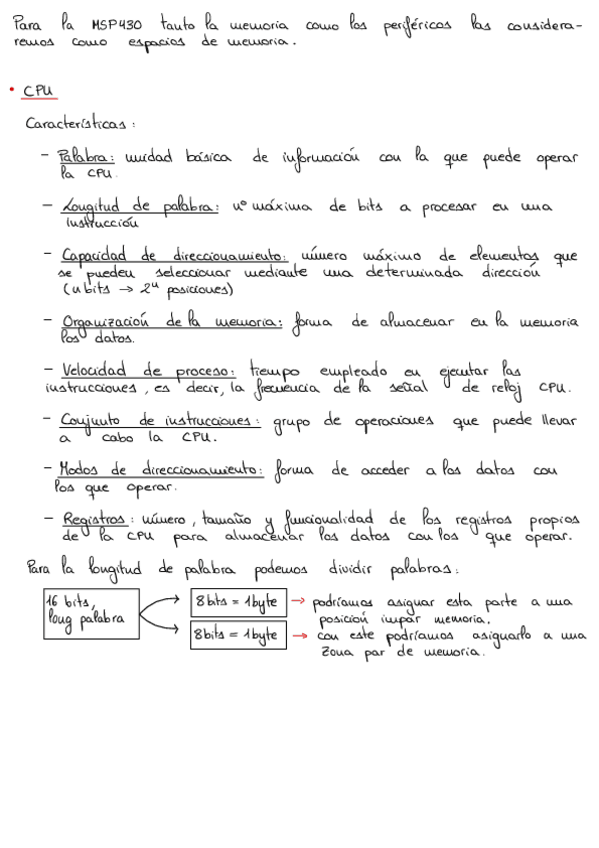 Para la MSP430 tanto la memoria como los periféricos las considera-
remos como espacios de memoria.
• CPU
Características:
- Palabra: unidad básica de información con la que puede operar
la CPU.
- Longitud de palabra: nº máximo de bits a procesar en una
instrucción
- Capacidad de direccionamiento: número máximo de elementos que
se pueden seleccionar mediante una determinada dirección
(n bits → 2ⁿ posiciones)
- Organización de la memoria: forma de almacenar en la memoria
los datos.
- Velocidad de proceso: tiempo empleado en ejecutar las
instrucciones, es decir, la frecuencia de la señal de reloj CPU.
- Conjunto de instrucciones: grupo de operaciones que puede llevar
a cabo la CPU.
- Modos de direccionamiento: forma de acceder a los datos con
los que operar.
- Registros: número, tamaño y funcionalidad de los registros propios
de la CPU para almacenar los datos con los que operar.
Para la longitud de palabra podemos dividir palabras:
16 bits,
long palabra
8 bits = 1 byte → podríamos asignar esta parte a una
posición impar memoria.
8 bits = 1 byte → con este podríamos asignarlo a una
zona par de memoria.